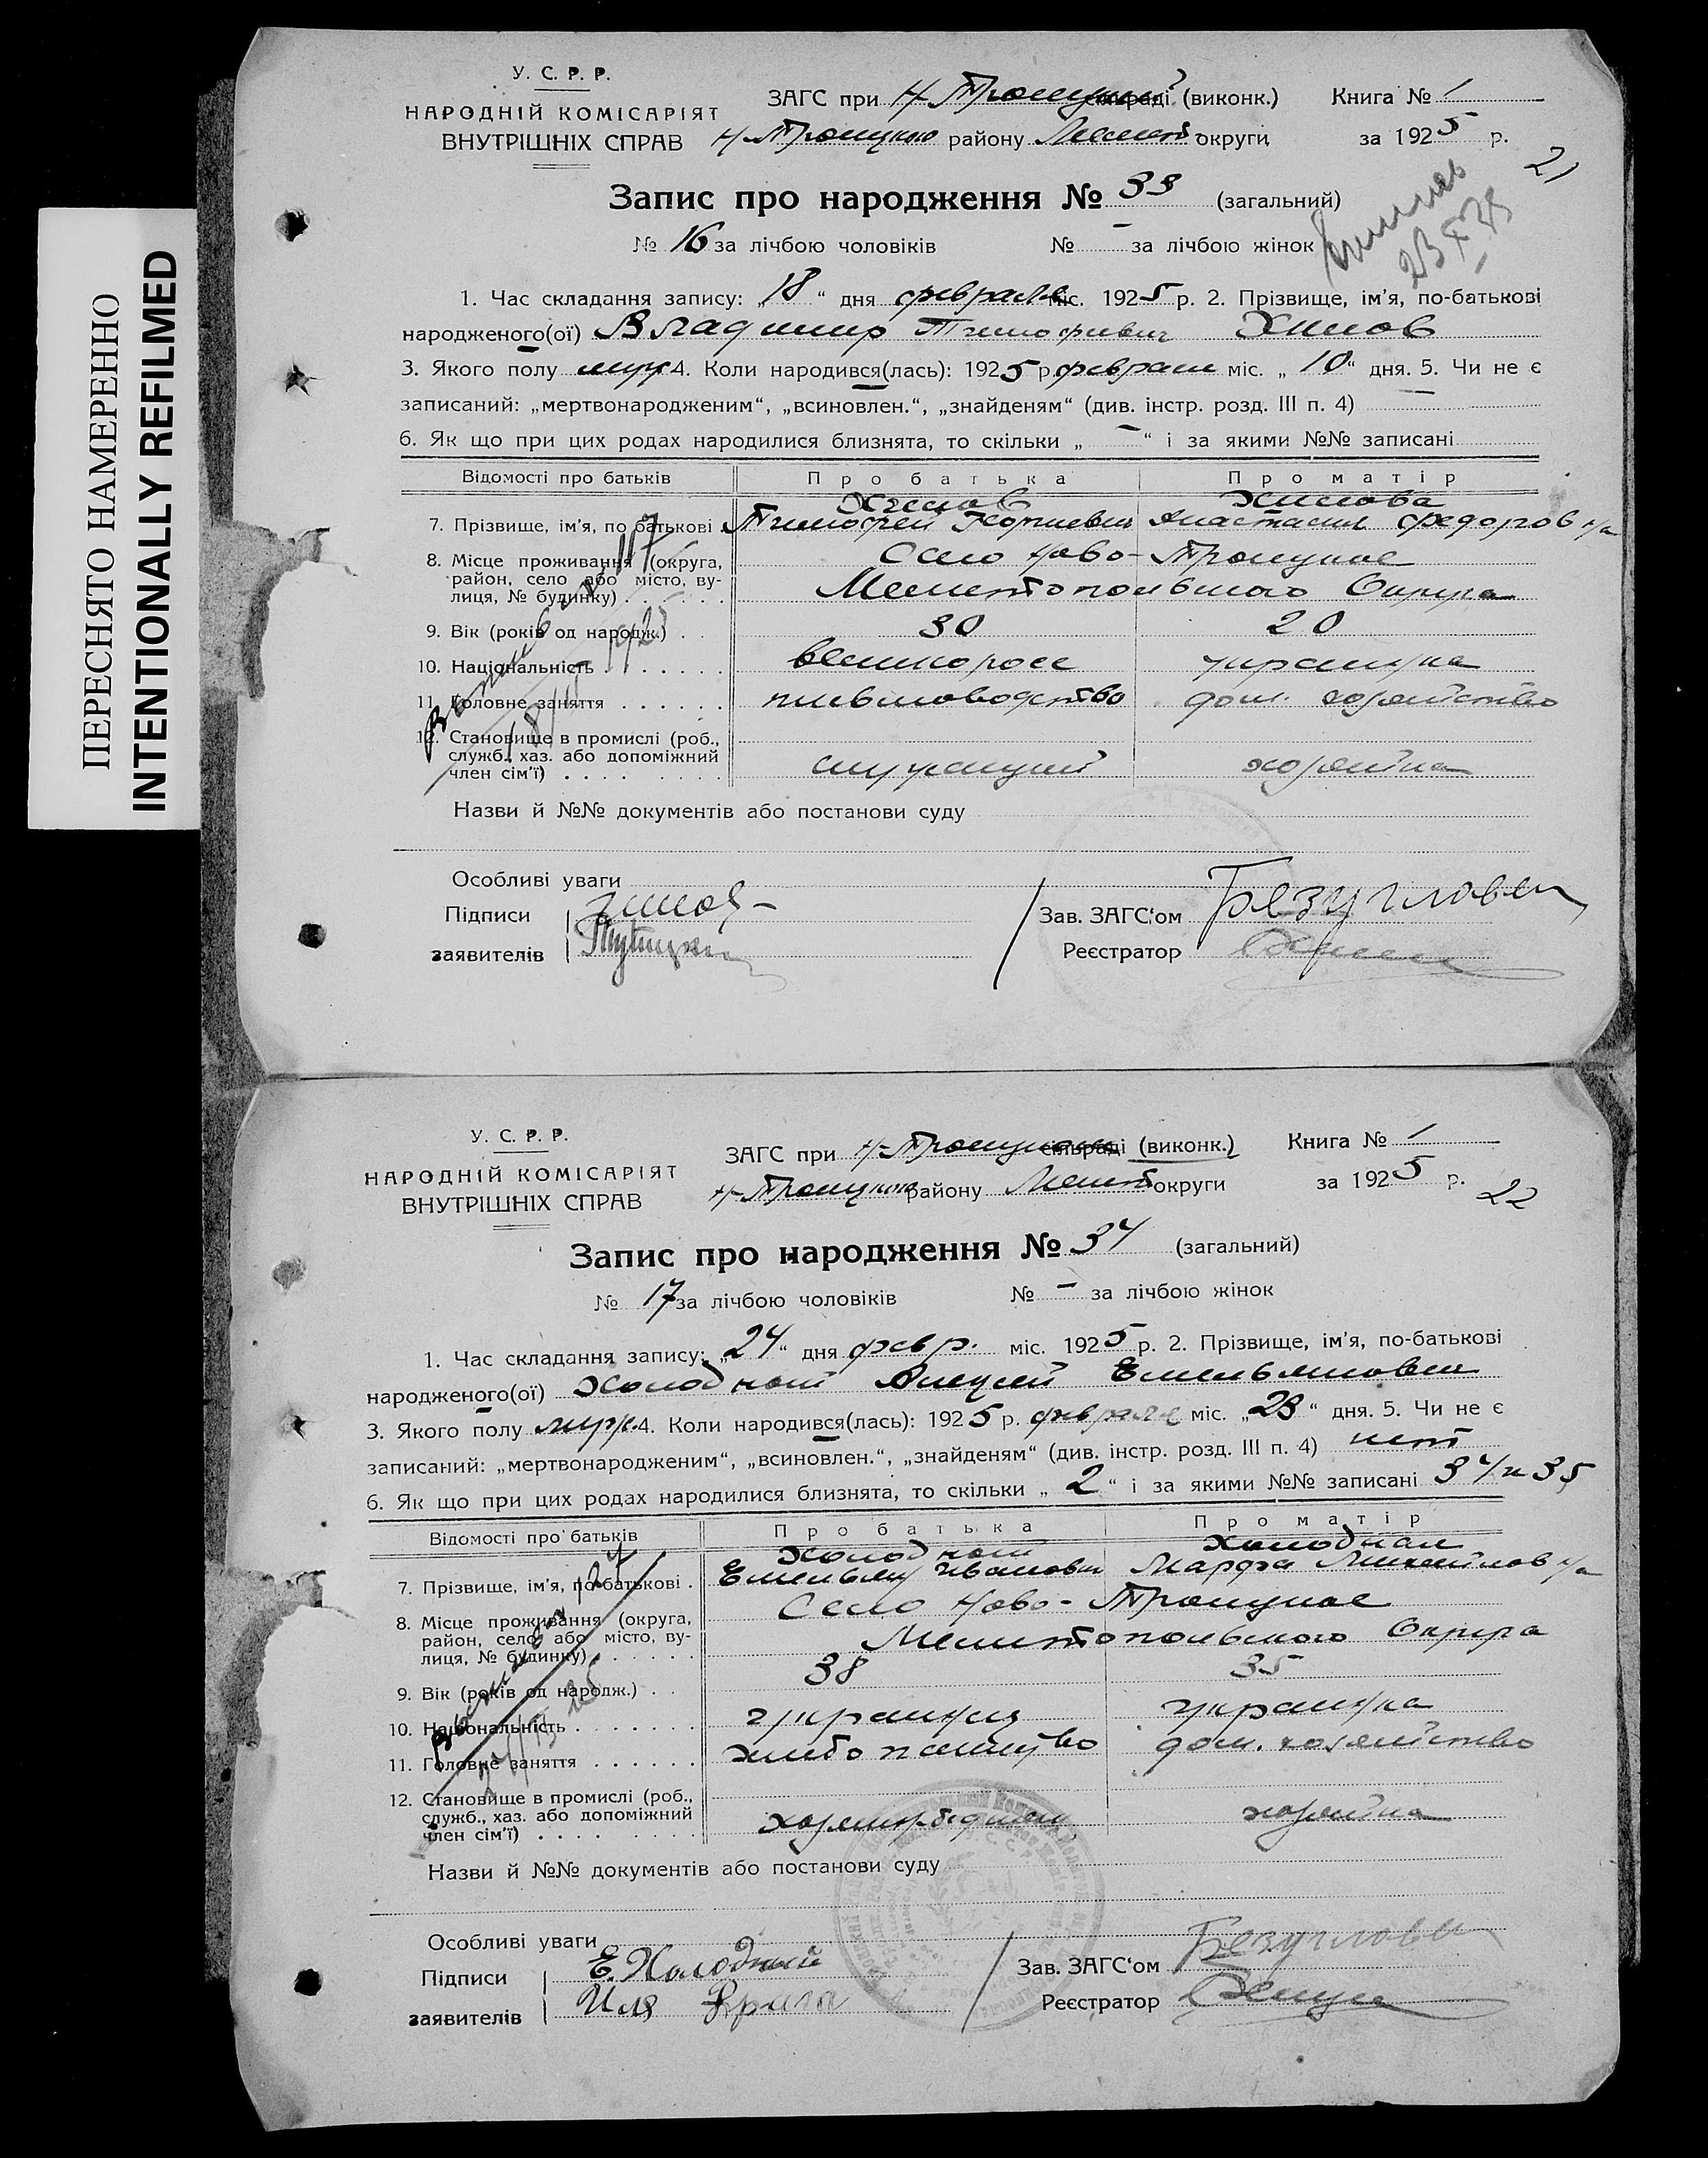 ПЕРЕСНЯТО НАМЕРЕННО
INTENTIONALLY REFILMED
У. С. Р. Р.
НАРОДНІЙ КОМІСАРІЯТ
ВНУТРІШНІХ СПРАВ
ЗАГС при Н-Троицком (виконк.)
Н-Троицкого району Мелит. округи
Книга № 1
за 1925 р.
21
Запис про народження № 33 (загальний)
№ 16 за лічбою чоловіків № — за лічбою жінок
1. Час складання запису: „18“ дня февраля міс. 1925 р. 2. Прізвище, ім'я, по-батькові
народженого(ої) Владимир Тимофеевич
3. Якого полу муж 4. Коли народився(лась): 1925 р. февраля міс. „10“ дня. 5. Чи не є
записаний: „мертвонародженим“, „всиновлен.“, „знайденям“ (див. інстр. розд. III п. 4) —
6. Як що при цих родах народилися близнята, то скільки „—“ і за якими №№ записані
Відомості про батьків Про батька Про матір
7. Прізвище, ім'я, по батькові Тимофей Георгиевич Анастасия Федоровна
8. Місце проживання (округа, район, село або місто, вулиця, № будинку) Село Ново-Троицкое
Мелитопольского Округа
9. Вік (років од народж.) 30 20
10. Національність великоросс украинка
11. Головне заняття письмоводство дом. хозяйство
12. Становище в промислі (роб., служб., хаз. або допоміжний член сім'ї) служащий хозяйка
Назви й №№ документів або постанови суду
Особливі уваги
Підписи
заявителів
Зав. ЗАГС'ом
Реєстратор
У. С. Р. Р.
НАРОДНІЙ КОМІСАРІЯТ
ВНУТРІШНІХ СПРАВ
ЗАГС при Н-Троицком сільраді (виконк.)
Н-Троицкого району Мелит округи
Книга № 1
за 1925 р.
22
Запис про народження № 34 (загальний)
№ 17 за лічбою чоловіків № — за лічбою жінок
1. Час складання запису: „24“ дня февр. міс. 1925 р. 2. Прізвище, ім'я, по-батькові
народженого(ої) Холодный Алексей Емельянович
3. Якого полу муж. 4. Коли народився(лась): 1925 р. февраля міс. „23“ дня. 5. Чи не є
записаний: „мертвонародженим“, „всиновлен.“, „знайденям“ (див. інстр. розд. III п. 4) нет
6. Як що при цих родах народилися близнята, то скільки „2“ і за якими №№ записані 34 и 35
Відомості про батьків Про батька Про матір
Холодный Холодная
7. Прізвище, ім'я, по-батькові Емельян Иванович Марфа Михайловна
8. Місце проживання (округа, район, село або місто, вулиця, № будинку) Село Ново-Троицкое
Мелитопольского Округа
9. Вік (років од народж.) 38 35
10. Національність украинец украинка
11. Головне заняття хлебопашество дом. хозяйство
12. Становище в промислі (роб., служб., хаз. або допоміжний член сім'ї) хозяйка
Назви й №№ документів або постанови суду
Особливі уваги
Підписи Е. Холодный
заявителів Иля
Зав. ЗАГС'ом
Реєстратор